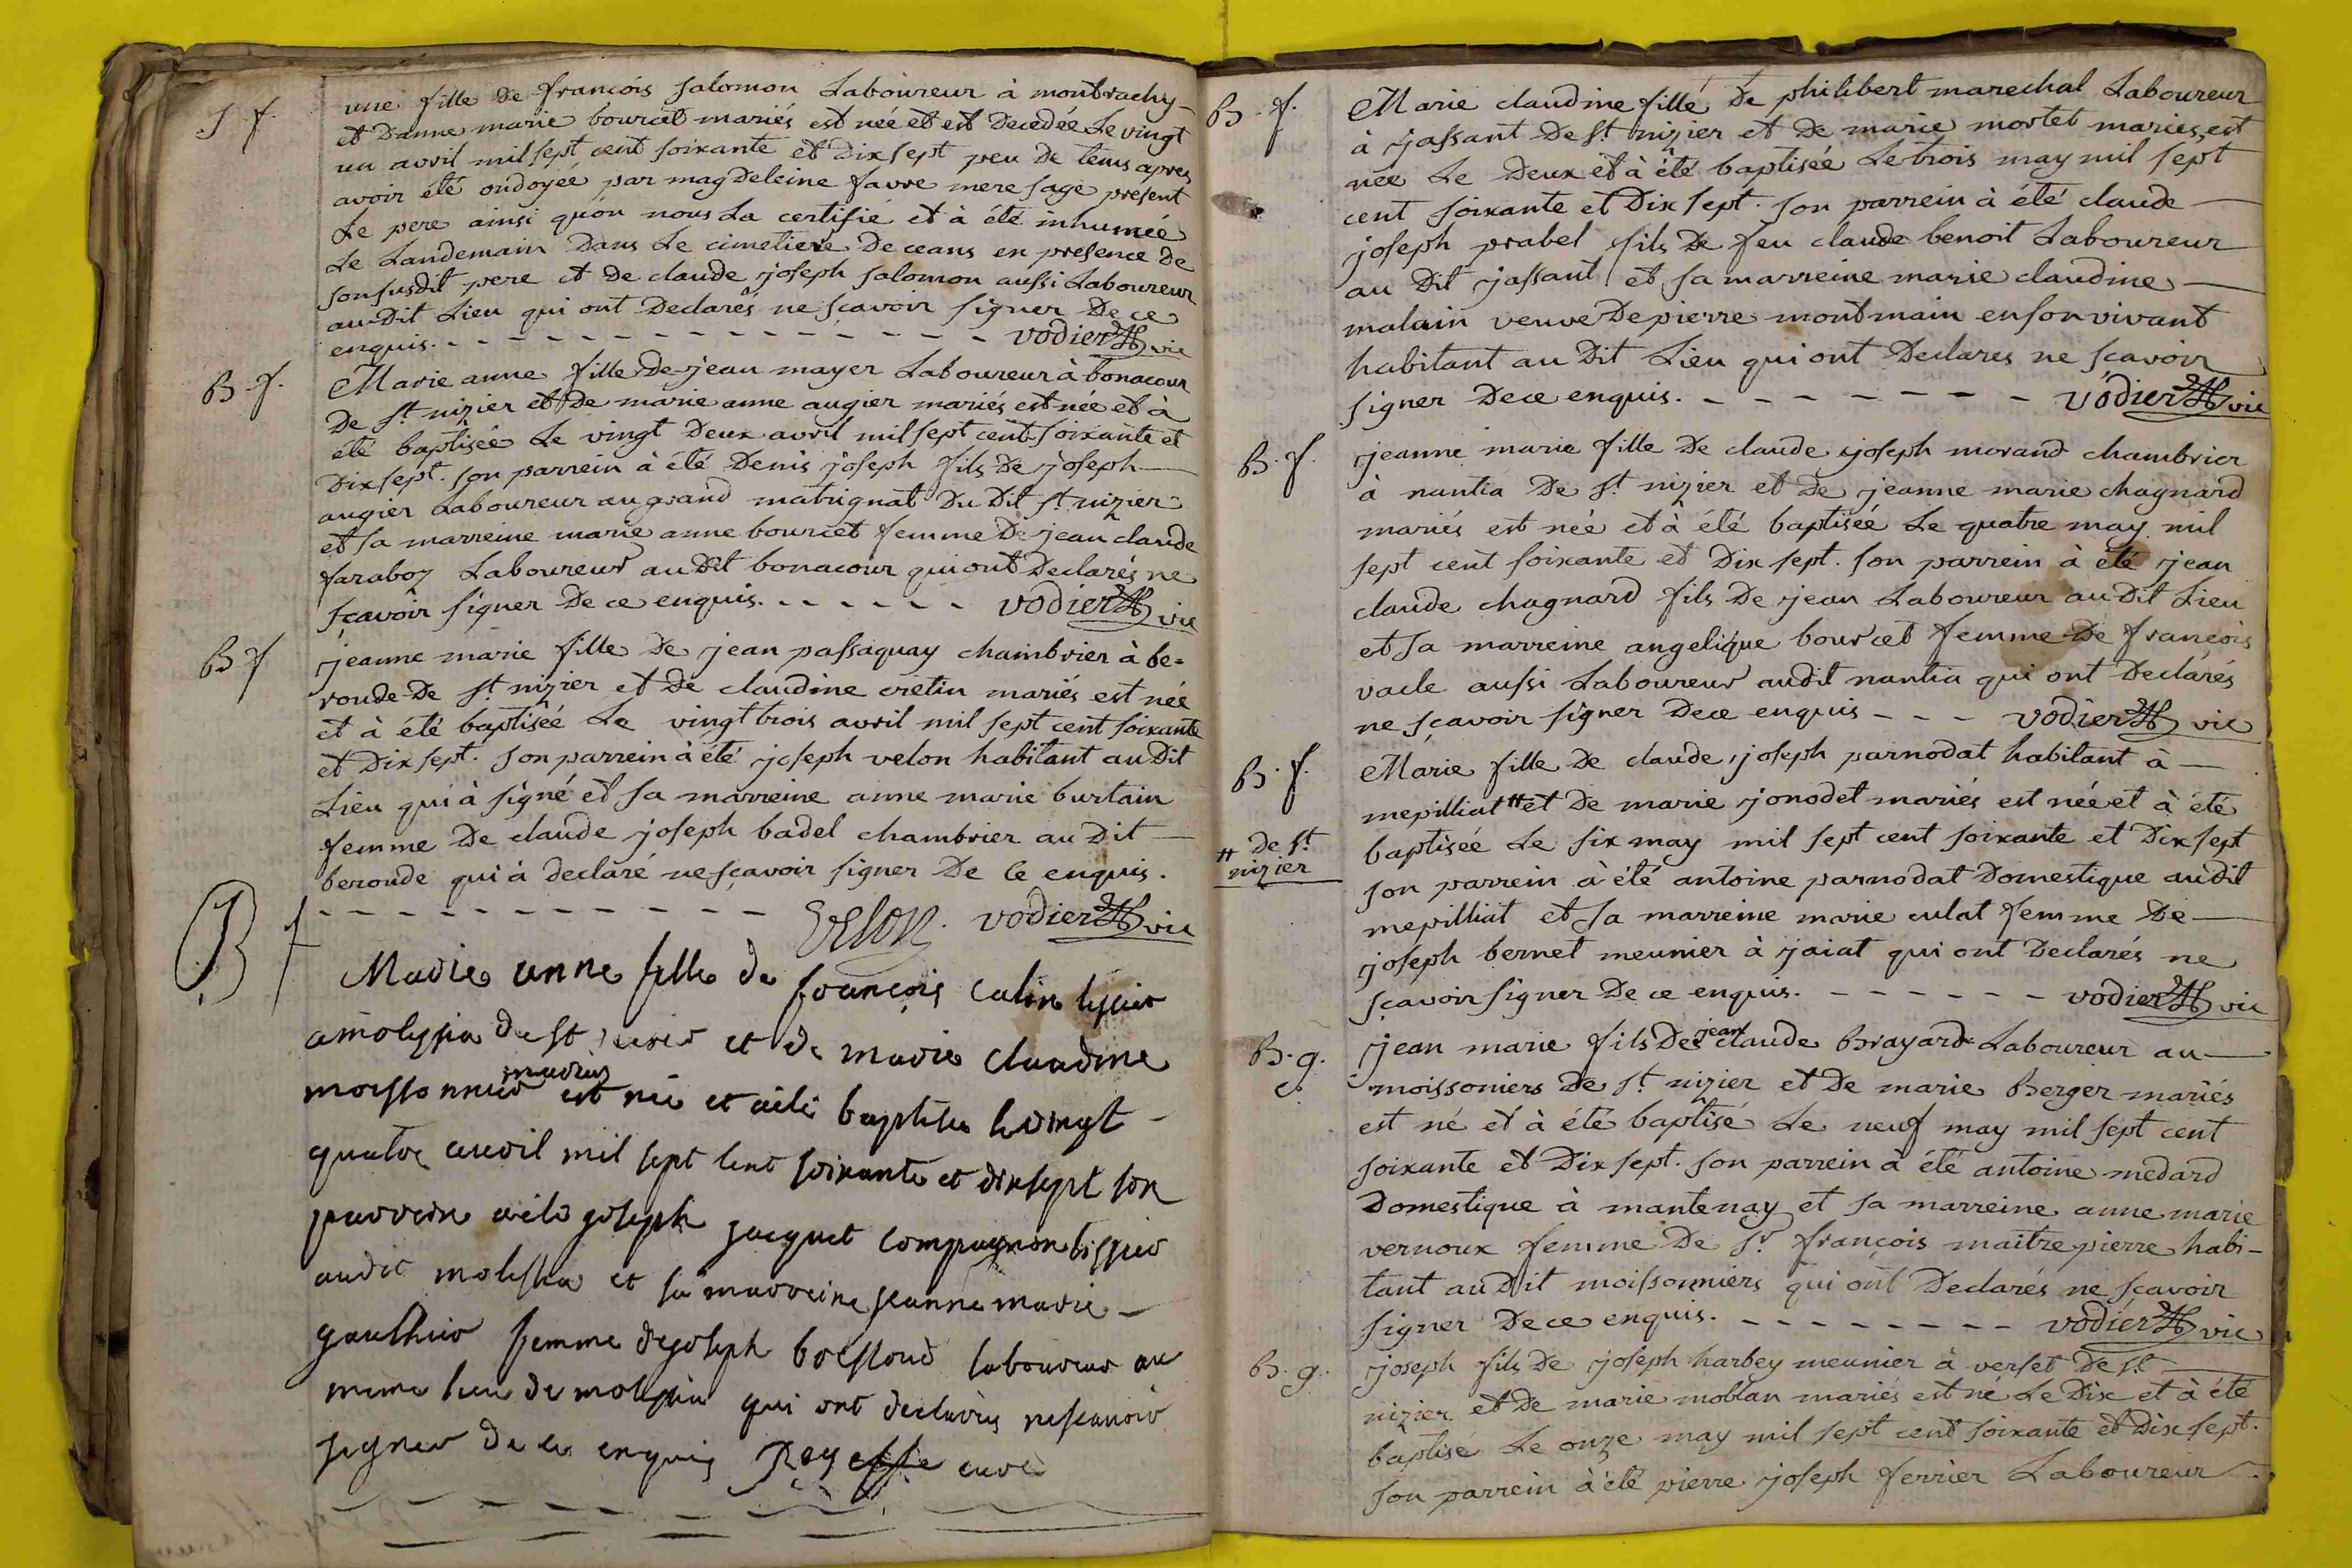 S f.
une fille de françois salomon Laboureur à montrachy-
et Danne marie bourcet mariés est née et est Decedée Le vingt
un avril mil sept cent soixante et Dix sept peu De tems apres
avoir été ondoyée par magdeleine favre mere sage present
Le pere ainsi qu'on nous La certifié et à été inhumée
Le Landemain Dans Le cimetiere De ceans en presence De
son susdit pere et De claude joseph salomon aussi Laboureur
au Dit Lieu qui ont Declarés ne sçavoir signer De ce
enquis. - - - - - - - - - - - - - - vodier vic
B. f.
Marie anne fille De jean mayer Laboureur à bonacour
De St. nizier et De marie anne augier mariés est née et à
été baptisée Le vingt Deux avril mil sept cent soixante et
Dix sept. son parrein à été Denis joseph fils De joseph
augier Laboureur au grand matrignat Du Dit St. nizier
et sa marreine marie anne bourcet femme De jean claude
faraboz Laboureur au Dit bonacour qui ont Declarés ne
sçavoir signer De ce enquis. - - - - - - vodier vic
B f
jeanne marie fille De jean passaquay chambrier à be=
ronde De St. nizier et De claudine cretin mariés est née
et à été baptisée Le vingt trois avril mil sept cent soixante
et Dix sept. son parrein à été joseph velon habitant au Dit
Lieu qui à signé et sa marreine anne marie burtain
femme De claude joseph badel chambrier au Dit
beronde qui à declaré ne sçavoir signer De ce enquis.
- - - - - - - - - - - - velon. vodier vic
B f
Marie anne fille de françois calin tissier
a molissia de st nisier et de marie claudine
moissonnier mariés est née et aété baptisée le vingt -
quatre avril mil sept cent soixante et dixsept son
parrein aété joseph jacquet compagnon tissier
audit molissia et sa marreine jeanne marie -
gauthier femme de joseph bressoud laboureur au
meme lieu de molissia qui ont declarés nescavoir
signer de ce enquis curé
B. f.
Marie claudine fille De philibert marechal Laboureur
à jassant De St. nizier et De marie mortet mariés, est
née Le Deux et à été baptisée Le trois may mil sept
cent soixante et Dix sept. son parrein à été claude
joseph prabel fils De feu claude benoit Laboureur
au Dit jassant et sa marreine marie claudine
malain veuve De pierre montmain en son vivant
habitant au Dit Lieu qui ont Declarés ne sçavoir
signer De ce enquis. - - - - - - - vodier vic
B. f.
jeanne marie fille De claude joseph morand chambrier
à nantia De St. nizier et De jeanne marie chagnard
mariés est née et à été baptisée Le quatre may mil
sept cent soixante et Dix sept. son parrein à été jean
claude chagnard fils De jean Laboureur au Dit Lieu
et sa marreine angelique bourcet femme De françois
vacle aussi Laboureur audit nantia qui ont Declarés
ne sçavoir signer De ce enquis - - - vodier vic
B. f.
Marie fille De claude joseph parnodat habitant à
mepilliat # et De marie jonodet mariés est née et à été
# de St.
nizier
baptisée Le six may mil sept cent soixante et Dix sept
son parrein à été antoine parnodat Domestique au dit
mepilliat et sa marreine marie culat femme De
joseph bernet meunier à jaiat qui ont Declarés ne
sçavoir signer De ce enquis. - - - - - - vodier vic
B. g.
jean marie fils De jean claude Brayard Laboureur au
moissoniers De St. nizier et De marie Berger mariés
est né et à été baptisé Le neuf may mil sept cent
soixante et Dix sept. son parrein à été antoine medard
Domestique à mantenay et sa marreine anne marie
vernoux femme De Sr. françois maitrepierre habi-
tant au Dit moissonniers qui ont Declarés ne sçavoir
signer De ce enquis. - - - - - - - - vodier vic
B. g.
joseph fils De joseph harbey meunier à verset De St.
nizier et De marie moblan mariés est né Le Dix et à été
baptisé Le onze may mil sept cent soixante et Dix sept.
son parrein à été pierre joseph ferrier Laboureur